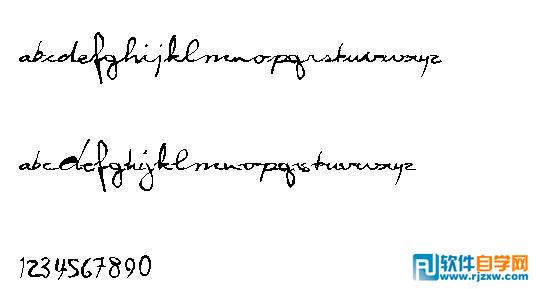 abcdefghijklmnopqrstuvwxyz
abcdefghijklmnopqrstuvwxyz
1234567890
RJ 软件自学网
www.rjzxw.com